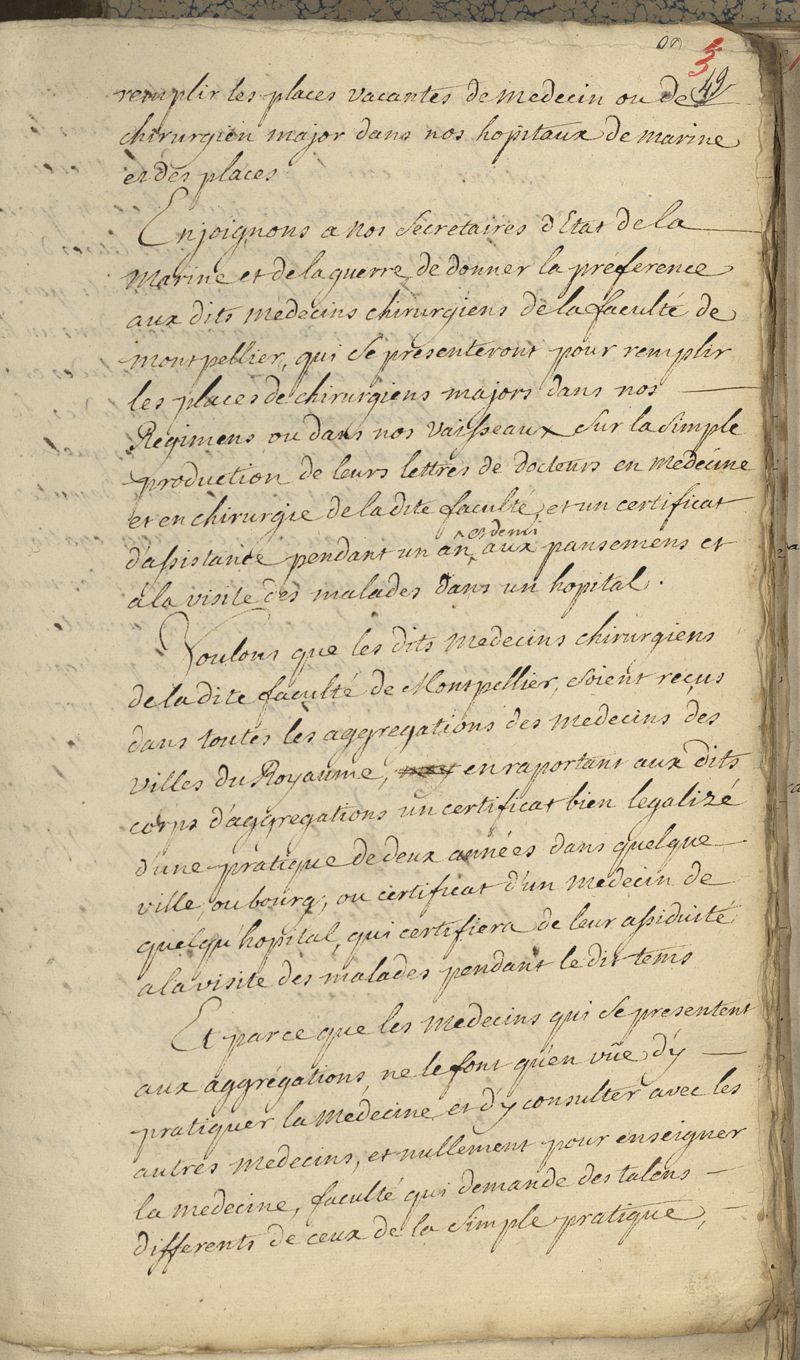 49
remplir les places vacantes de medecin ou de
chirurgien major dans nos hopitaux de marine
et des places
Enjoignons a nos Secretaires d'Etat de la
Marine et de la guerre, de donner la preference
aux dits medecins chirurgiens de la faculté de
montpellier, qui se presenteront pour remplir
les places de chirurgiens majors dans nos
Regimens ou dans nos vaisseaux sur la simple
production de leurs lettres de docteurs en medecine
et en chirurgie de la dite faculté, et un certificat
et demi
d'assistance pendant un an, aux pansemens et
à la visite des malades dans un hopital.
Voulons que les dits medecins chirurgiens
de la dite faculté de Montpellier, soient reçus
dans toutes les aggregations des medecins des
villes du Royaume, en raportant aux dits
corps d'aggregations un certificat bien legalizé
d'une pratique de deux années dans quelque
ville, ou bourg, ou certificat d'un medecin de
quelqu'hopital, qui certifiera de leur assiduité
a la visite des malades pendant le dit tems
Et parce que les medecins qui se presentent
aux aggrégations, ne le font qu'en vüe d'y
pratiquer la medecine et d'y consulter avec les
autres medecins, et nullement pour enseigner
la medecine, faculté qui demande des talens
differents de ceux de la simple pratique,